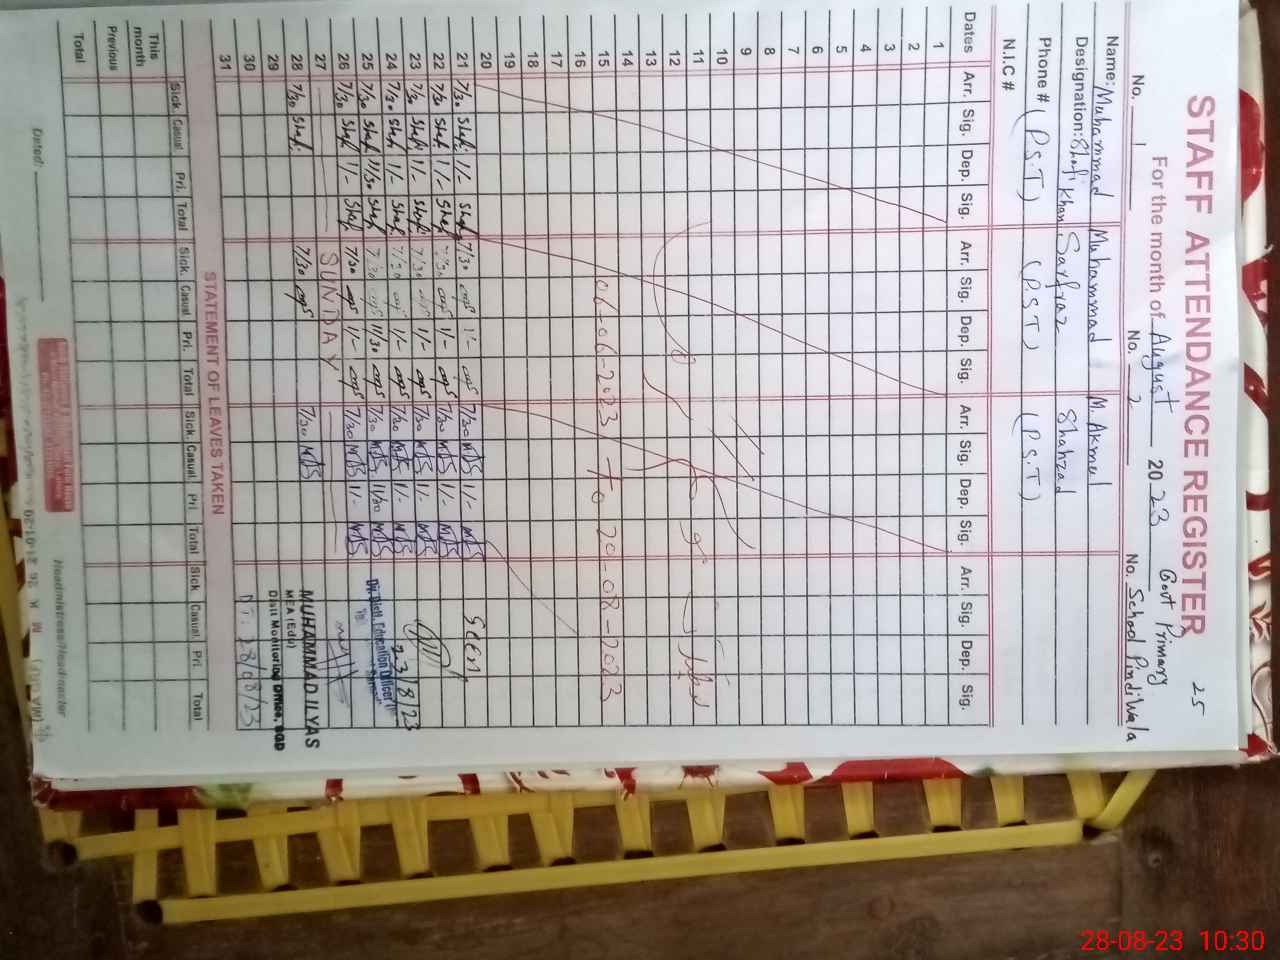 25
STAFF ATTENDANCE REGISTER
For the month of August 2023 Govt Primary
No. 1 No. 2 No. School Pindiwala
Name: Muhammad Muhammad M. Akmel
Designation: Shafi Khan Sarfraz Shahzad
Phone # (P.S.T) (P.S.T) (P.S.T)
N.I.C #
Dates Arr. Sig. Dep. Sig. Arr. Sig. Dep. Sig. Arr. Sig. Dep. Sig. Arr. Sig. Dep. Sig.
1
2
3
4
5
6
7
8
9
10
11
12
13
14
15 06-06-2023 to 20-08-2023
16
17
18
19
20
21 7/30 Shafi 1/- Shafi 7/30 1/- 7/30 1/- Seen
22 7/30 Shafi 1/- Shafi 7/30 1/- 7/30 1/-
23 7/30 Shafi 1/- Shafi 7/30 1/- 7/30 1/- 23/8/23
24 7/30 Shafi 1/- Shafi 7/30 1/- 7/30 1/-
25 7/30 Shafi 11/30 Shafi 7/30 11/30 7/30 11/30 Dy. Distt. Education Officer
26 7/30 Shafi 1/- Shafi 7/30 1/- 7/30 1/-
27 SUNDAY
28 7/30 Shafi 7/30 7/30 MUHAMMAD ILYAS
MEA (Edu)
29 Distt Monitoring Office, SGD
30 DT. 28/08/23
31
STATEMENT OF LEAVES TAKEN
Sick. Casual Pri. Total Sick. Casual Pri. Total Sick. Casual Pri Total Sick. Casual Pri Total
This month
Previous
Total
Dated: Headmistress/Headmaster
28-08-23 10:30